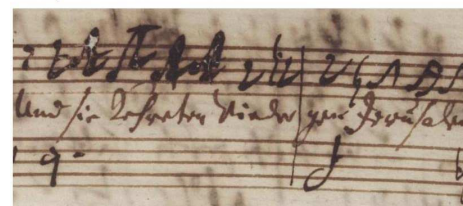 Und sie kehreten wieder gen Jerusalem